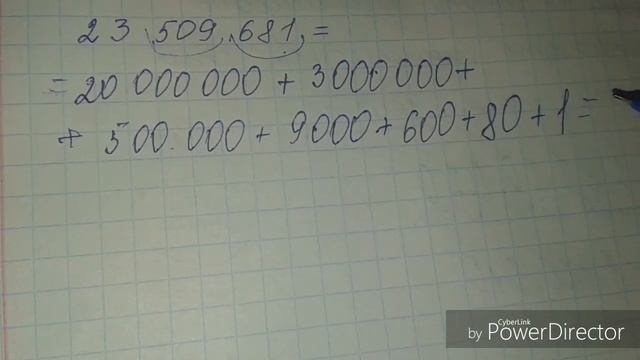 23 509 681 =
= 20 000 000 + 3000000 +
+ 500.000 + 9000 + 600 + 80 + 1 =
CyberLink
by PowerDirector